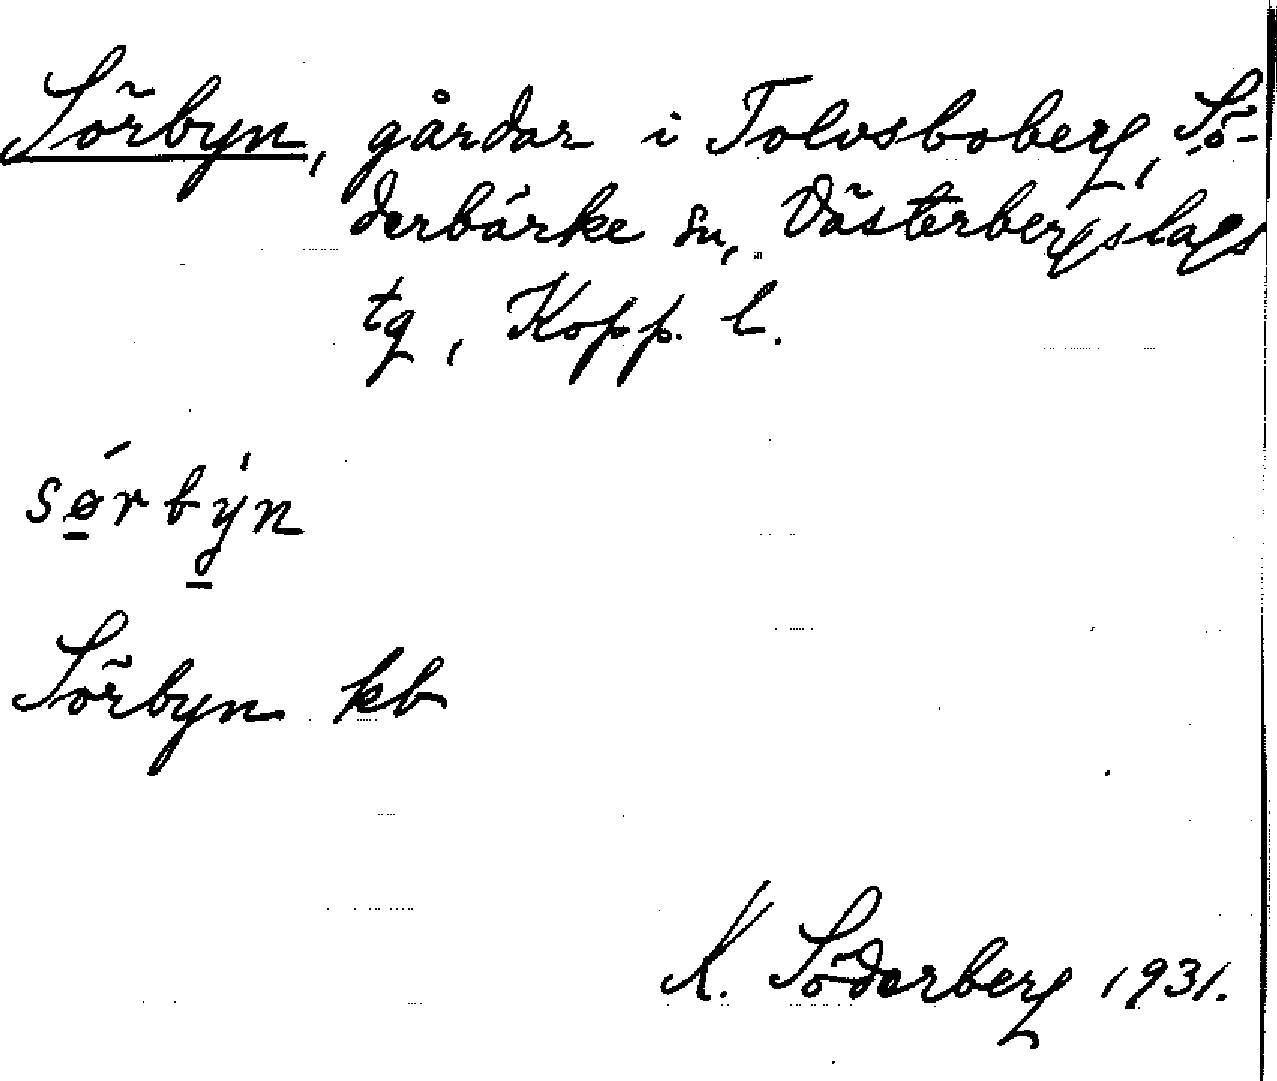 Sörbyn, gårdar i Tolvsboberg, Sö-
derbärke sn, Västerbergslags
tg, Kopp. l.
sǿ̱rby̱̍n
Sörbyn kb
K. Söderberg 1931.